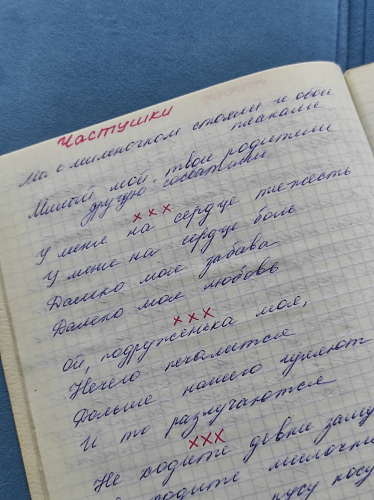 Частушки
Мы с миленочком стояли и обои
плакали
Милый мой, твои родители
другую сосватали
х х х
У меня на сердце тяжесть
У меня на сердце боль
Далеко моя забава
Далеко моя любовь
х х х
Ой, подруженька моя,
Нечего печалится
Дольше нашего гуляют
И то разлучаются
ххх
Не ходите девки замуж
ходите милочки
русу косу